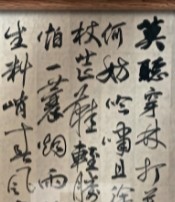 莫聽穿林打葉
何妨吟嘯且徐
杖芒鞋輕勝
怕一蓑烟雨
生料峭春風